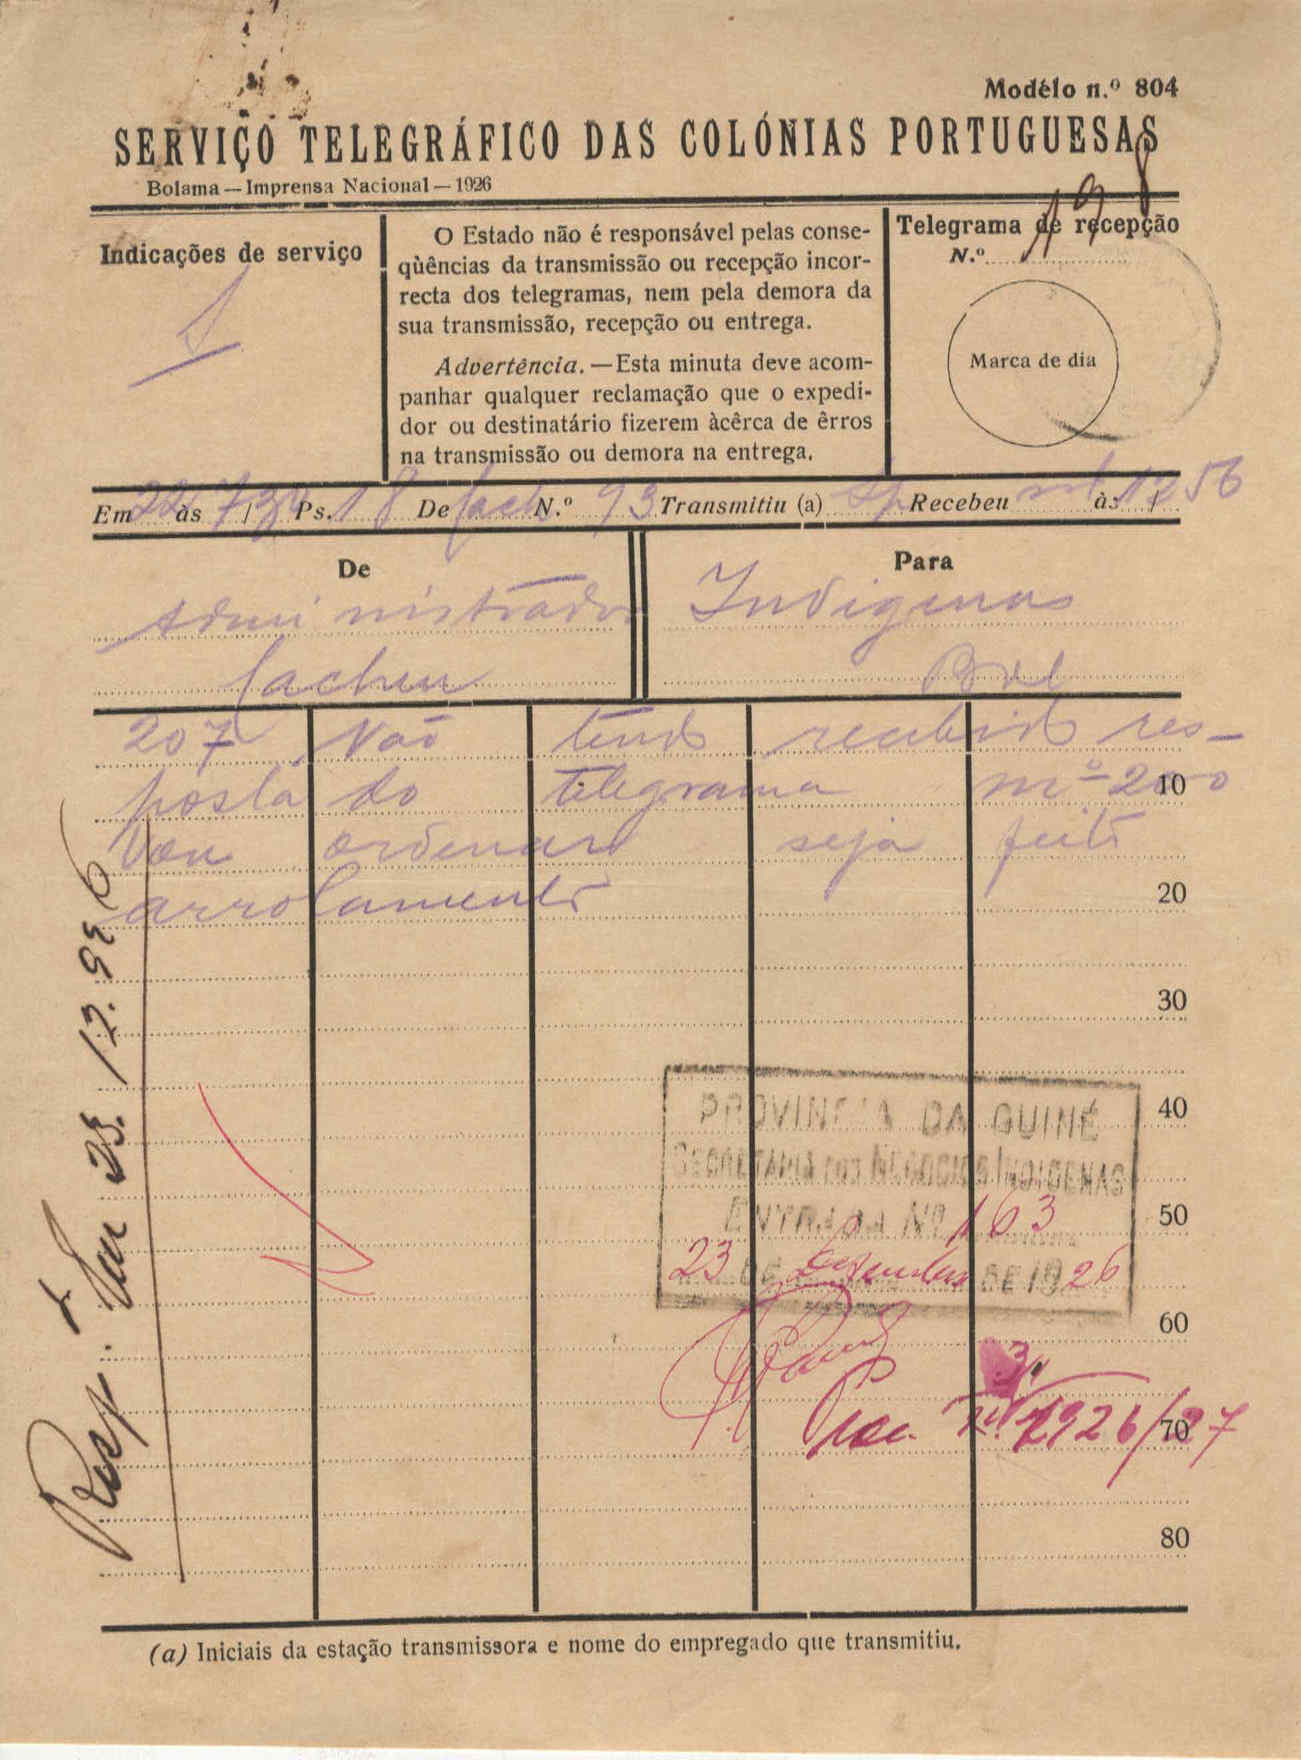 Modélo n.º 804
SERVIÇO TELEGRÁFICO DAS COLÓNIAS PORTUGUESAS
Bolama — Imprensa Nacional — 1926
Indicações de serviço
O Estado não é responsável pelas conse-
qüências da transmissão ou recepção incor-
recta dos telegramas, nem pela demora da
sua transmissão, recepção ou entrega.
Advertência. — Esta minuta deve acom-
panhar qualquer reclamação que o expedi-
dor ou destinatário fizerem àcêrca de êrros
na transmissão ou demora na entrega.
Telegrama de recepção
N.º 198
Marca de dia
Em 22 às / Ps. 18 De Cach N.º 93 Transmitiu (a) Recebeu às / 12 56
De
Administrador
Cacheu
Para
Indigenas
Bol
207 Não tendo recebido res-
posta do telegrama nº 200
10
vou ordenar seja feito
arrolamento
20
30
40
50
60
70
80
PROVINCIA DA GUINÉ
SECRETARIA DOS NEGOCIOS INDIGENAS
ENTRADA Nº 163
23 DE Dezembro DE 1926
1926/27
Resp. em 23. 12. 926
(a) Iniciais da estação transmissora e nome do empregado que transmitiu.